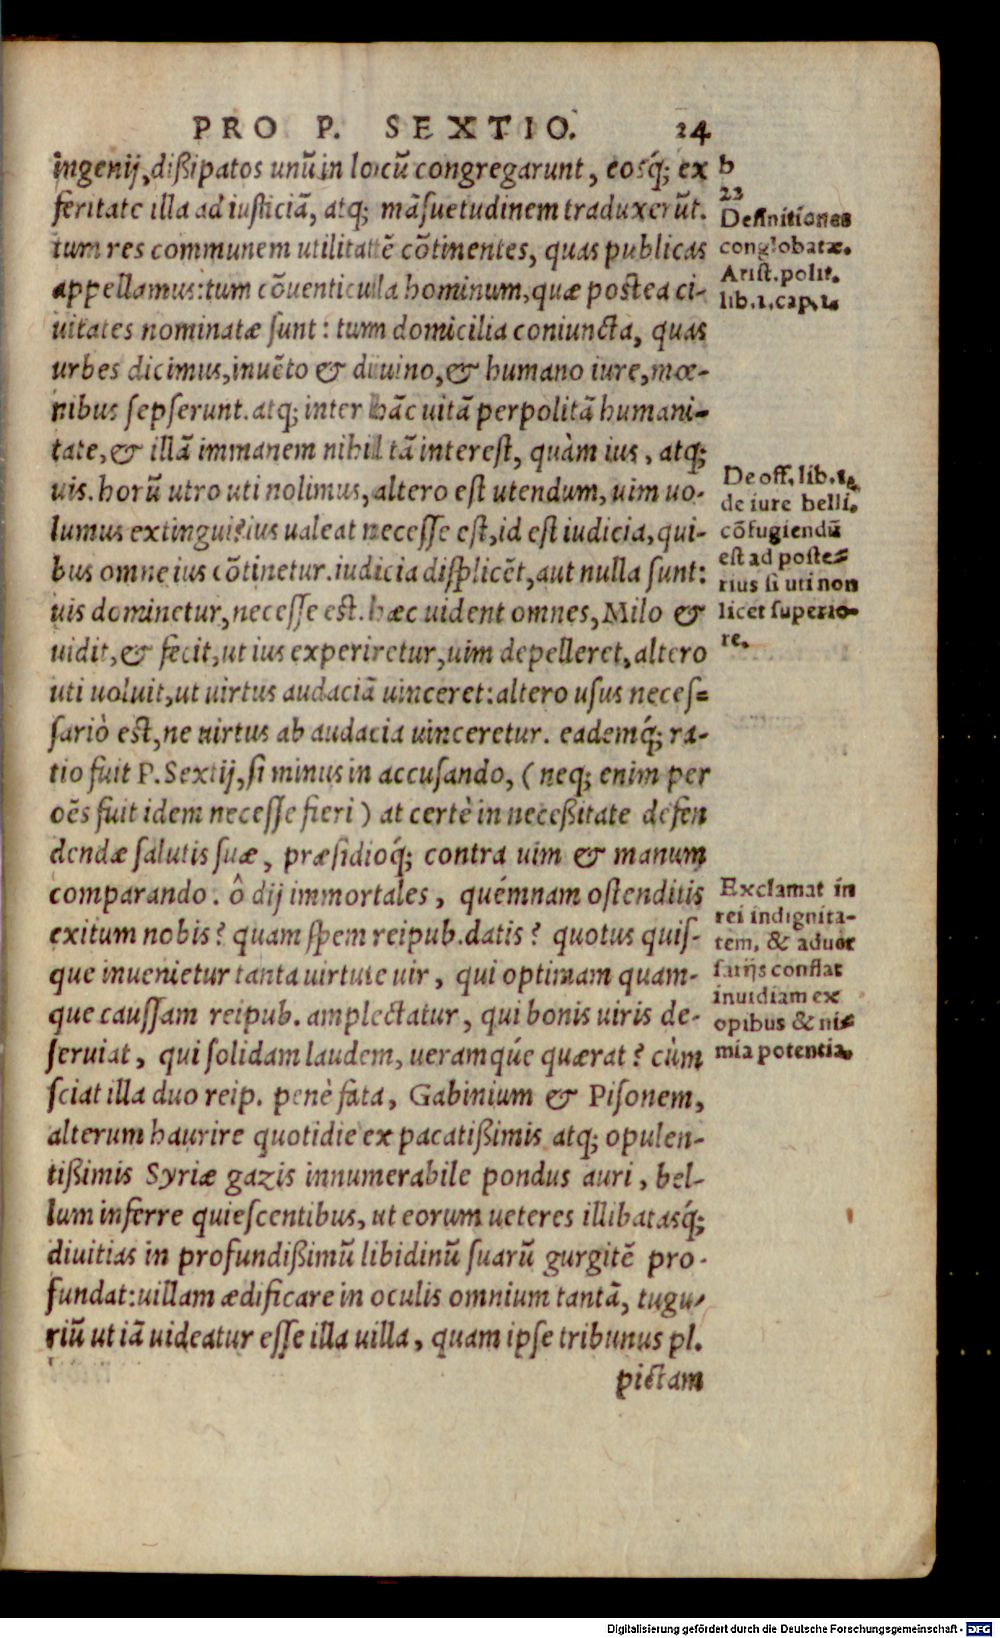 PRO P. SEXTIO. 24
ingenij, dißipatos unũ in locũ congregarunt, eosq́; ex
feritate illa ad iusticiã, atq; mãsuetudinem traduxerũt.
tum res communem utilitatẽ cõtinentes, quas publicas
appellamus: tum cõuenticulla hominum, quæ postea ci-
uitates nominatæ sunt: tum domicilia coniuncta, quas
urbes dicimus, inuẽto & diuino, & humano iure, mœ-
nibus sepserunt. atq; inter hãc uitã perpolitã humani-
tate, & illã immanem nihil tã interest, quàm ius, atq;
uis. horũ utro uti nolimus, altero est utendum, uim uo-
lumus extingui? ius ualeat necesse est, id est iudicia, qui-
bus omne ius cõtinetur. iudicia displicẽt, aut nulla sunt:
uis dominetur, necesse est. hæc uident omnes, Milo &
uidit, & fecit, ut ius experiretur, uim depelleret, altero
uti uoluit, ut uirtus audaciã uinceret: altero usus neces-
sariò est, ne uirtus ab audacia uinceretur. eademq́; ra-
tio fuit P. Sextij, si minus in accusando, (neq; enim per
oẽs fuit idem necesse fieri) at certè in neceßitate defen
dendæ salutis suæ, præsidioq́; contra uim & manum
comparando. ô dij immortales, quémnam ostenditis
exitum nobis? quam spem reipub. datis? quotus quis-
que inuenietur tanta uirtute uir, qui optimam quam-
que caussam reipub. amplectatur, qui bonis uiris de-
seruiat, qui solidam laudem, ueramqúe quærat? cùm
sciat illa duo reip. penè fata, Gabinium & Pisonem,
alterum haurire quotidie ex pacatißimis atq; opulen-
tißimis Syriæ gazis innumerabile pondus auri, bel-
lum inferre quiescentibus, ut eorum ueteres illibatasq́;
diuitias in profundißimũ libidinũ suarũ gurgitẽ pro-
fundat: uillam ædificare in oculis omnium tantã, tugu-
riũ ut iã uideatur esse illa uilla, quam ipse tribunus pl.
pictam
b
23
Definitiones
conglobatæ.
Arist. polit.
lib. 1. cap. 1.
De off. lib. 1.
de iure belli.
cõfugiendũ
est ad poste-
rius si uti non
licet superio-
re.
Exclamat in
rei indignita-
tem, & aduer
sarijs conflat
inuidiam ex
opibus & ni-
mia potentia.
Digitalisierung gefördert durch die Deutsche Forschungsgemeinschaft - DFG